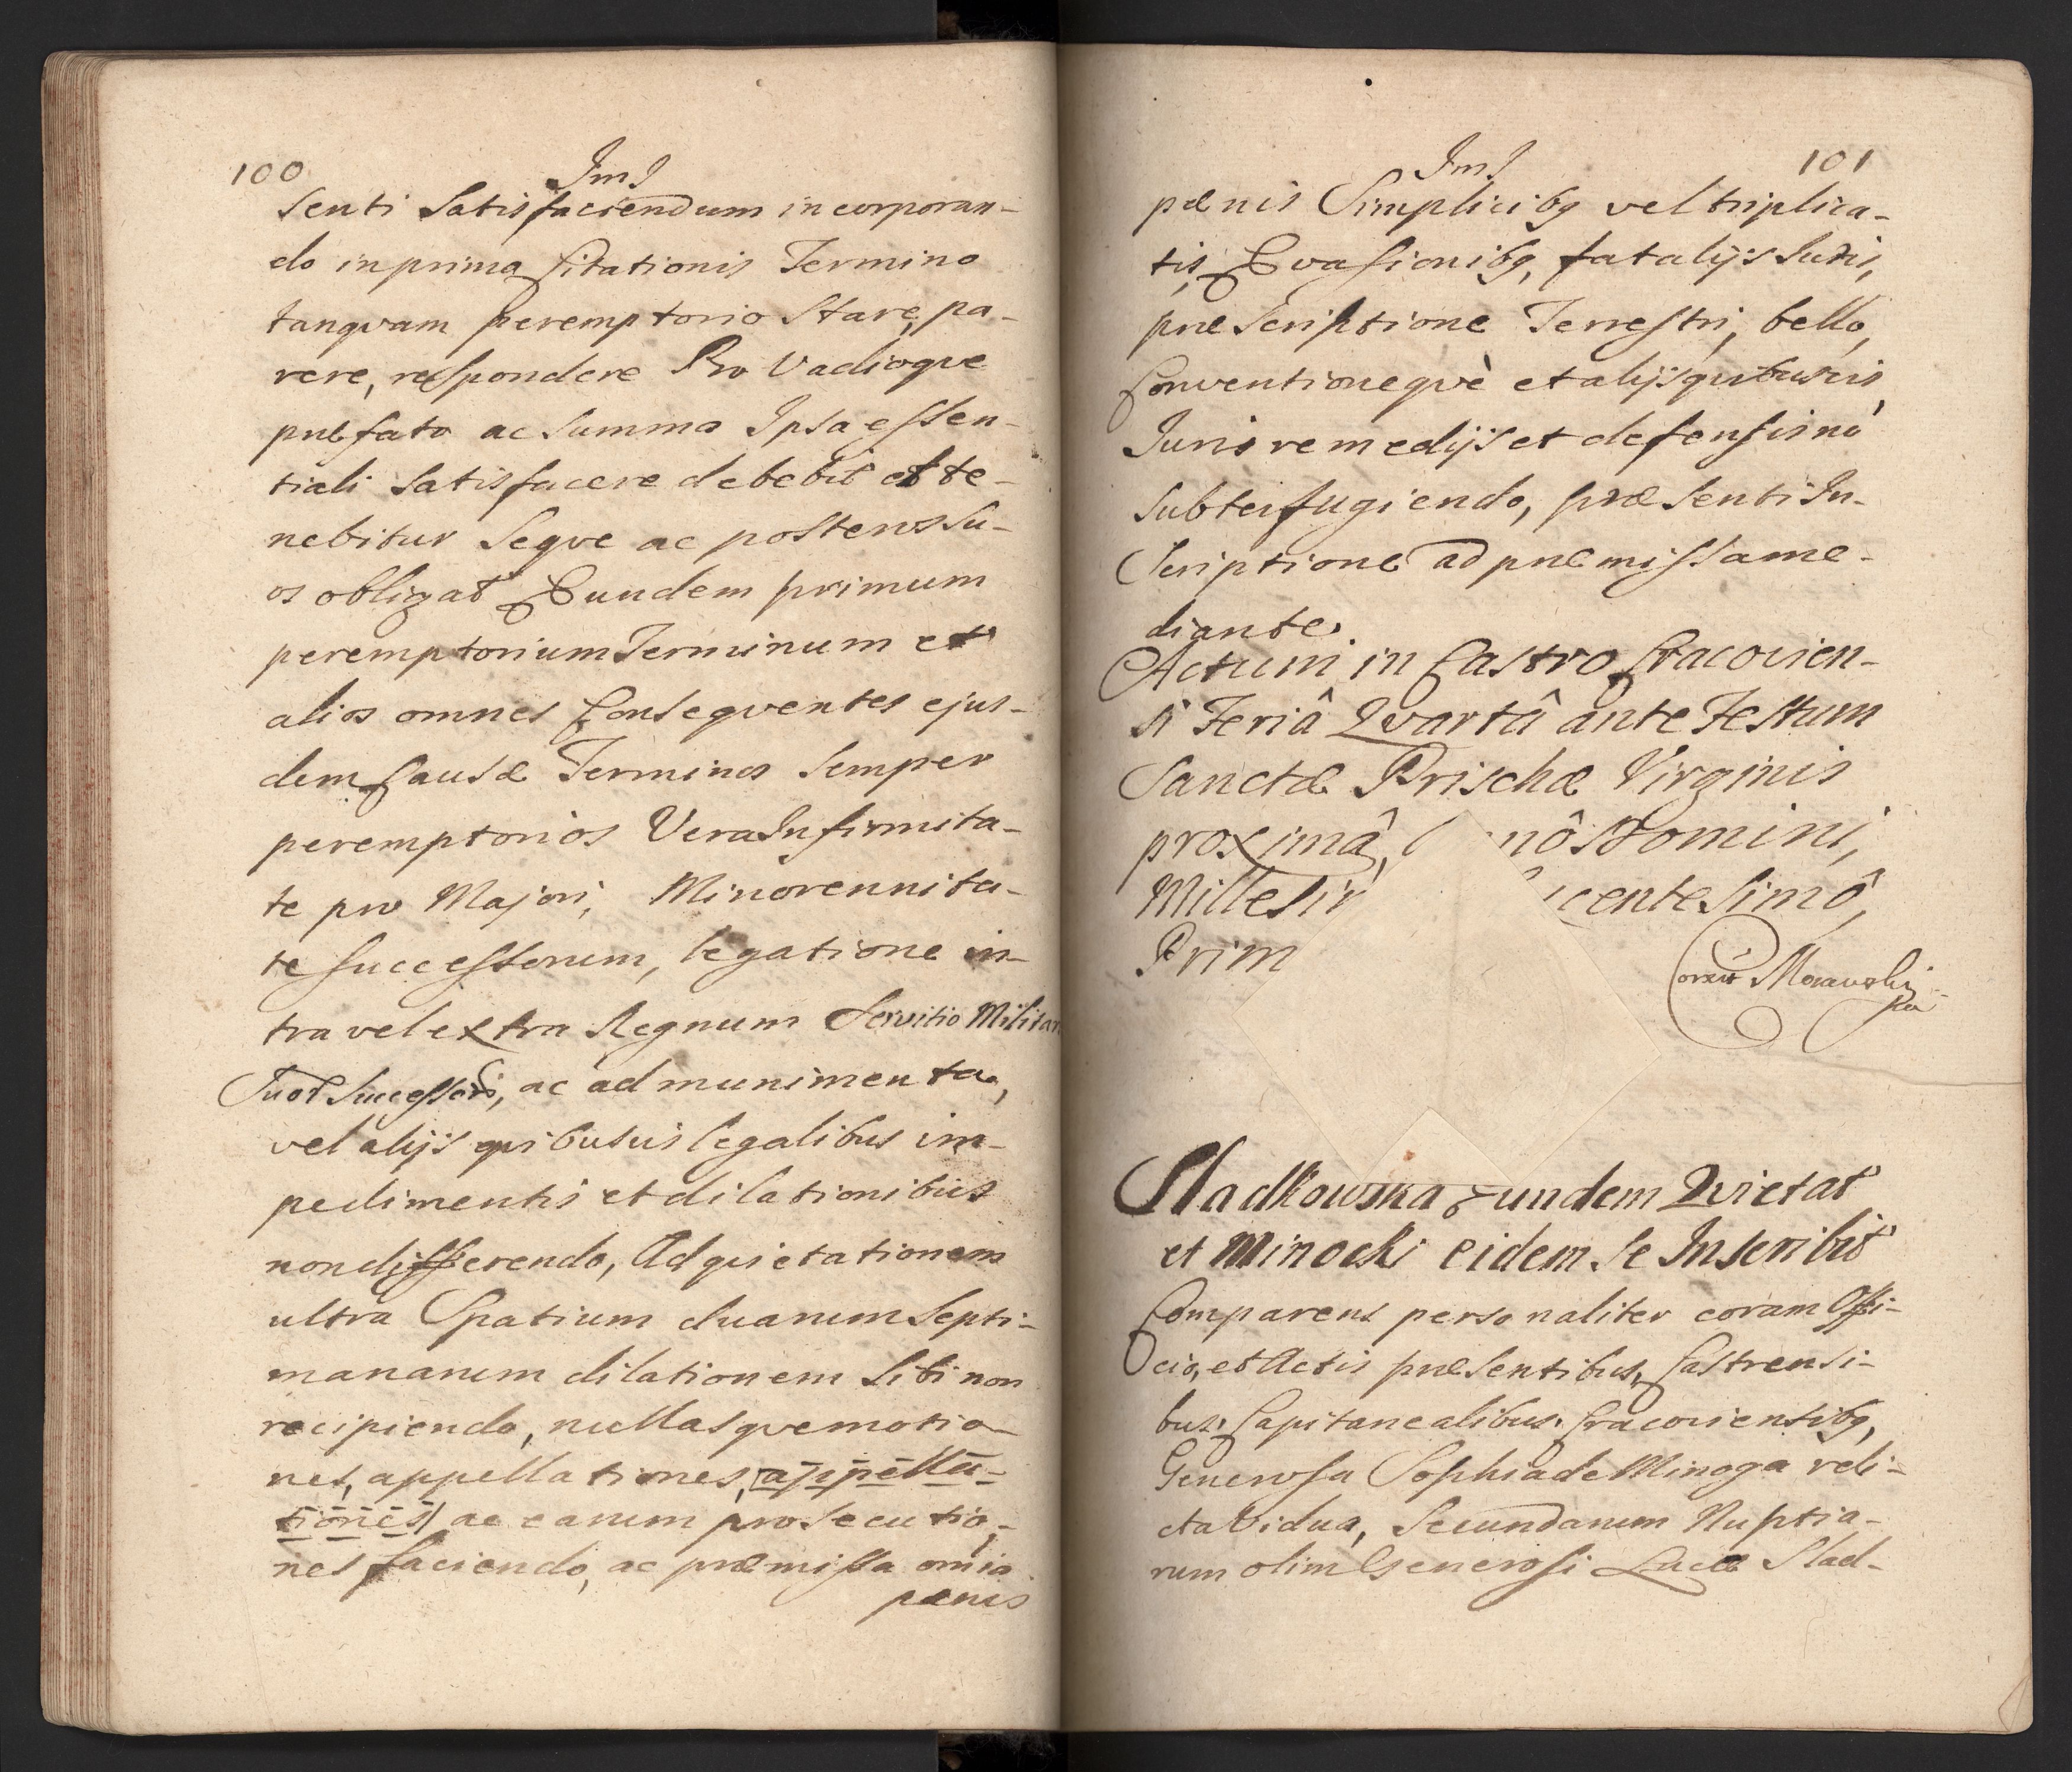 100
Ims
senti satisfaciendum incorporan-
do in prima Citationis Termino
tanqvam peremptorio Stare, pa-
rere, respondere Pro Vadioqve
præfato ac Summa Ipsa essen-
tiali satisfacere debebit et te-
nebitur Seqve ac posteros Su-
os obligat Eundem primum
peremptorium Terminum et
alios omnes Conseqventes ejus-
dem Causæ Terminos semper
peremptorios Vera Infirmita-
te pro Majori, Minorennita-
te Successorum, legatione in-
tra vel extra Regnum Servitio Militari
Suor Successor, ac ad munimenta,
vel alijs quibusvis legalibus im-
pedimentis et dilationibus
non differendo, Ad quietationem
ultra Spatium duarum Septi-
manarum dilationem Sibi non
recipiendo, nullasqve motio-
nes, appellationes, [appella-
tiones] ac earum prosecutio-
nes faciendo, ac præmissa omia
pænis
101
Ims
pænis Simplicibq vel triplica-
tis, Evasionibq, fatalijs Iuris,
præscriptione Terrestri, bello,
Conventioneqvè et alijs quibusvis
Iuris remedijs et defensis nō
subterfugiendo, præsenti In-
scriptione ad præmissa me-
diante.
Actum in Castro Cracovien-
si Feriâ Qvartâ ante Festum
Sanctæ Prischæ Virginis
proximâ, nô Domini,
Millesi centesimô,
Prim
Morawski
Sladkowska eundem Qvietat
et Minocki eidem se Inscribit
Comparens personaliter coram Offi-
cio, et Actis præsentibus, Castrensi-
bus, Capitanealibus, Cracoviensibq,
Generosa Sophia de Minoga reli-
cta Vidua, Secundarum Nuptia-
rum olim Generosi Lucæ Slad-